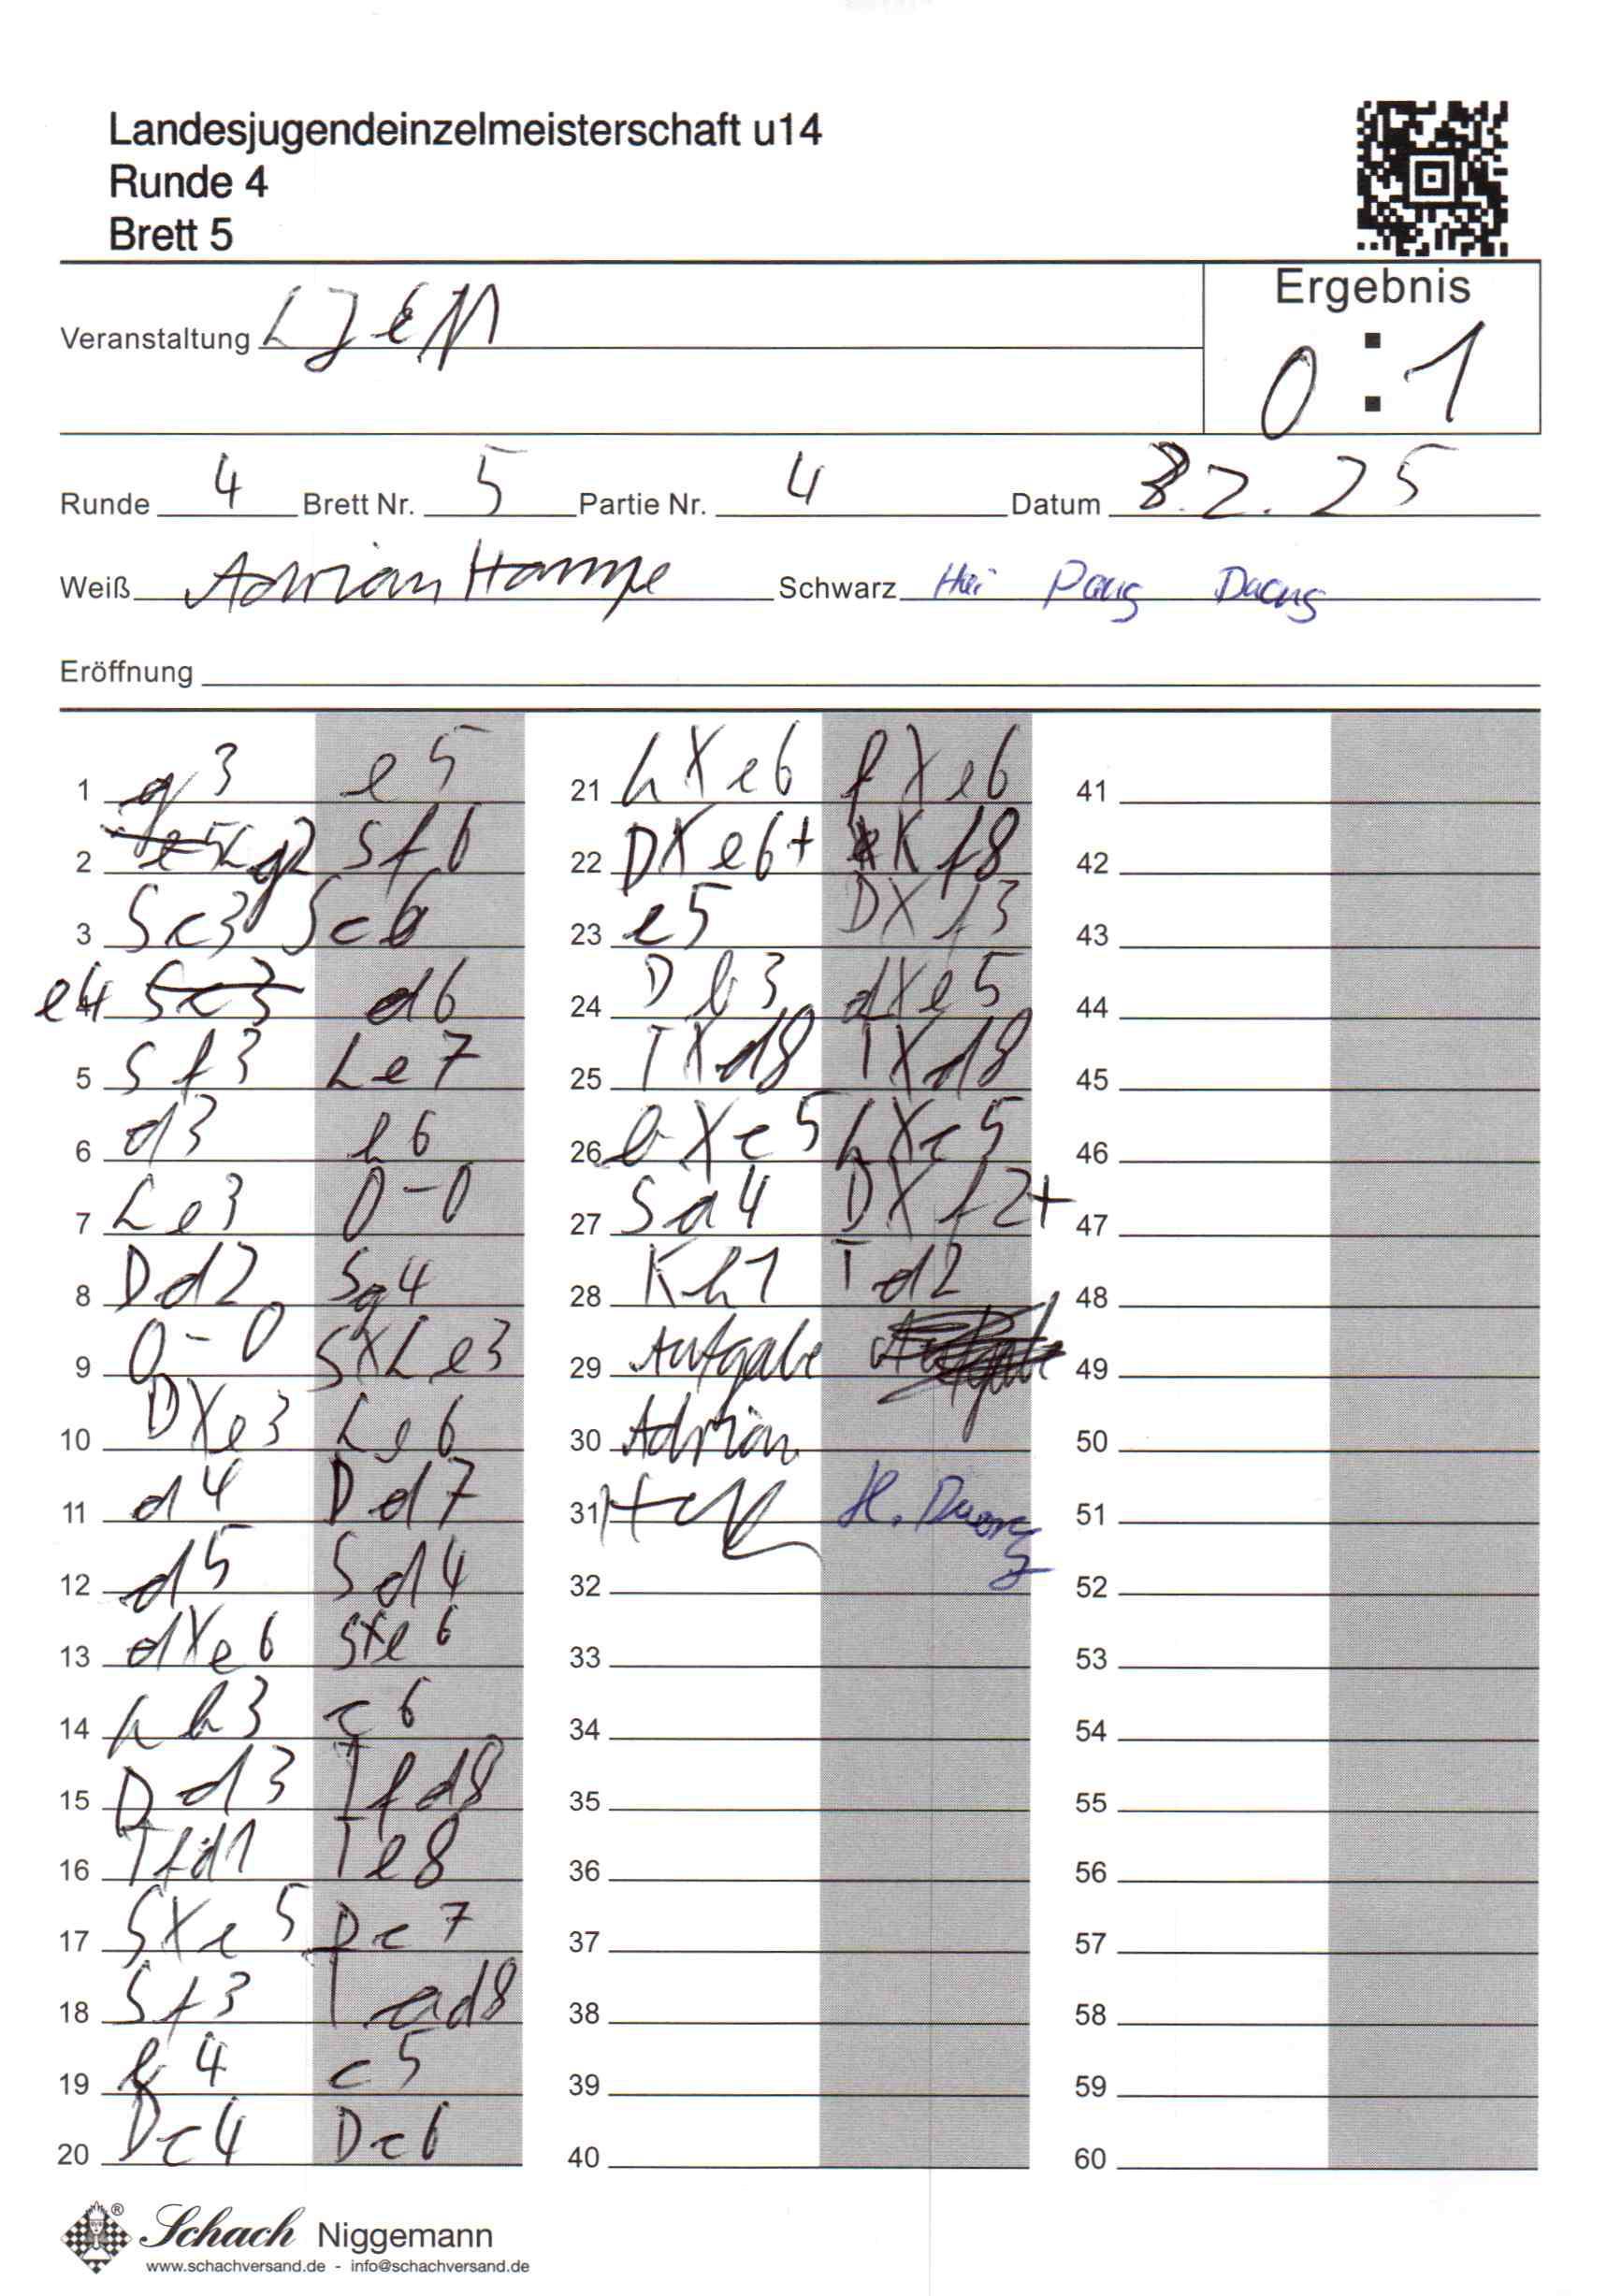 Landesjugendeinzelmeisterschaft u14
Runde 4
Brett 5
Ergebnis
0 : 1
Veranstaltung LJEM
Runde 4 Brett Nr. 5 Partie Nr. 4 Datum 8.2.25
Weiß Adrian Hampe Schwarz Hai Duong
Eröffnung
1 g3 e5 21 LXe6 fXe6 41
2 Lg2 Sf6 22 DXe6+ Kf8 42
3 Sc3 Sc6 23 e5 DXf3 43
4 e4 d6 24 Db3 dXe5 44
5 Sf3 Le7 25 TXd8 TXd8 45
6 d3 h6 26 bXc5 LXc5 46
7 Le3 0-0 27 Sa4 DXf2+ 47
8 Dd2 Sg4 28 Kh1 Td2 48
9 0-0 SXLe3 29 Aufgabe 49
10 DXe3 Le6 30 Adrian 50
11 d4 Dd7 31 H. Duong 51
12 d5 Sd4 32 52
13 dXe6 SXe6 33 53
14 Lh3 c6 34 54
15 Dd3 Tfd8 35 55
16 Tfd1 Te8 36 56
17 SXe5 Dc7 37 57
18 Sf3 Tad8 38 58
19 b4 c5 39 59
20 Dc4 Dc6 40 60
Schach Niggemann
www.schachversand.de - info@schachversand.de